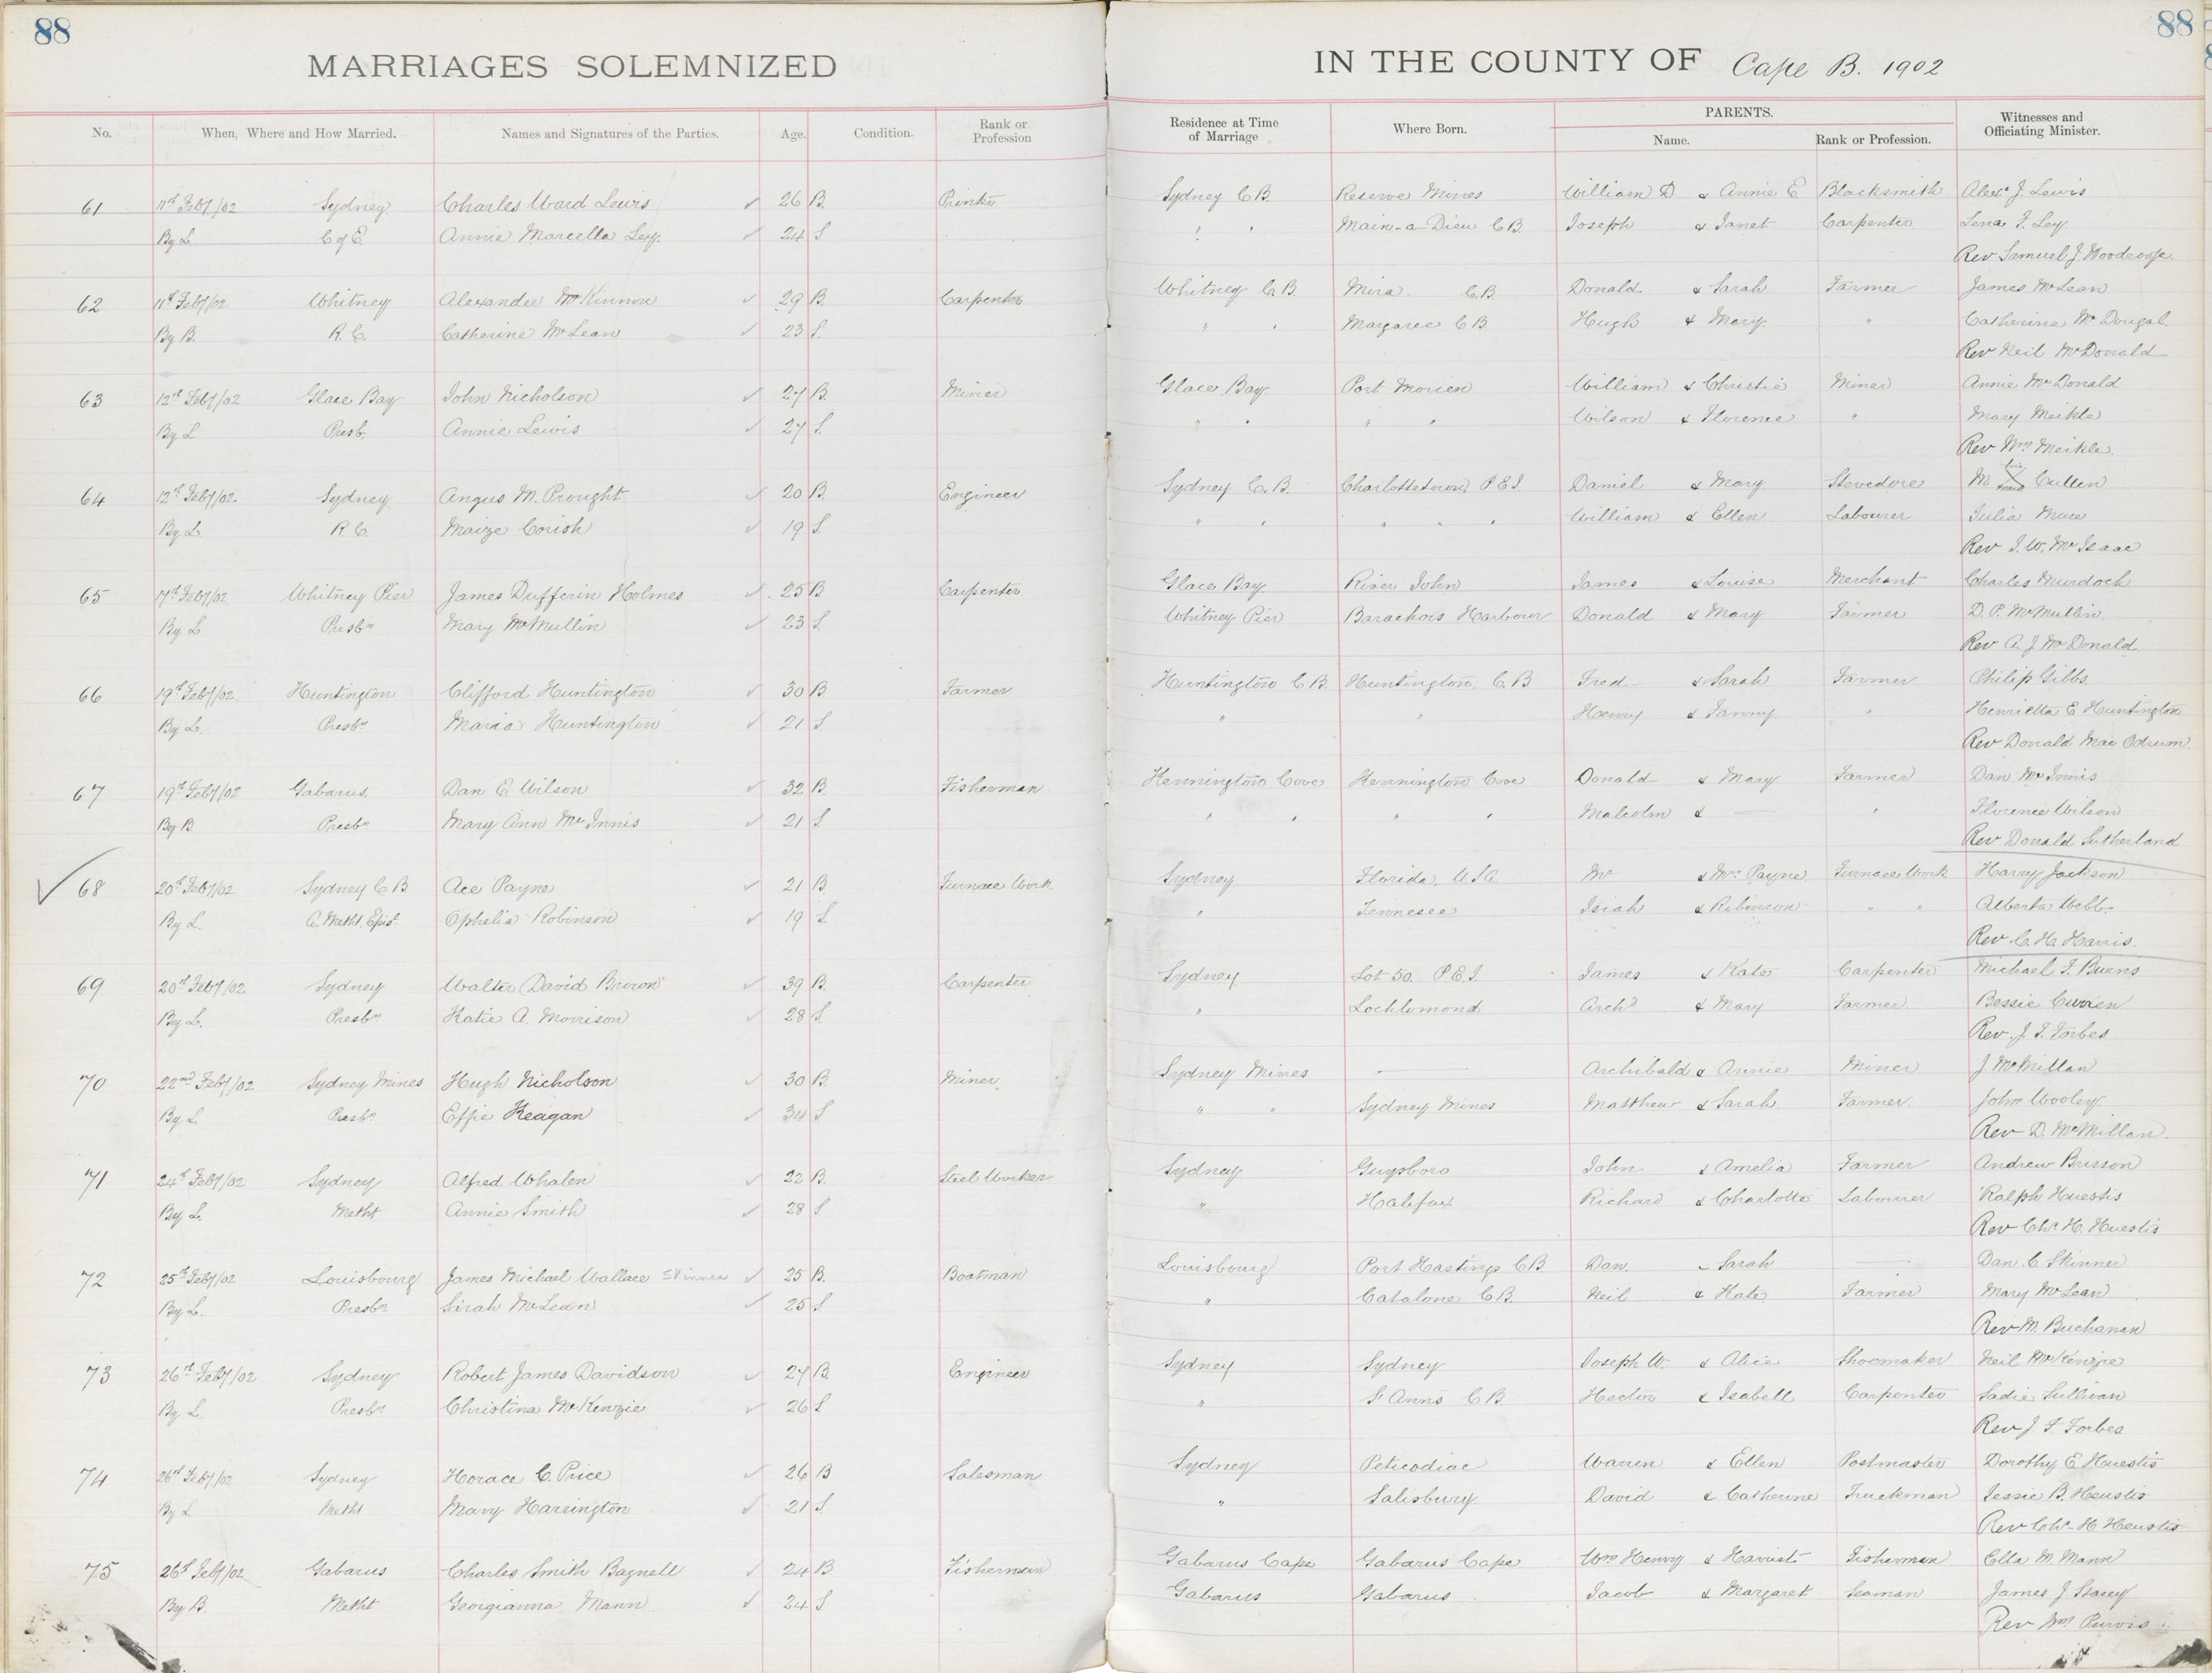 88
88
MARRIAGES SOLEMNIZED
IN THE COUNTY OF Cape B. 1902
No. When, Where and How Married. Names and Signatures of the Parties. Age. Condition. Rank or Profession Residence at Time of Marriage Where Born. PARENTS. Name. Rank or Profession. Witnesses and Officiating Minister.
61 11th Feby/02 Sydney Charles Ward Lewis ✓ 26 B. Printer Sydney C B. Reserve Mines William D & Annie E. Blacksmith Alexr J. Lewis
By L. C of E. Annie Marcella Ley. ✓ 24 S " " Main-a-Dieu C B. Joseph & Janet Carpenter Lena F. Ley
Rev Samuel J. Woodroofe
62 11th Feby/02 Whitney Alexander McKinnon ✓ 29 B. Carpenter Whitney C. B. Mira C.B. Donald & Sarah Farmer James McLean
By B. R. C. Catherine McLean ✓ 23 S. " " Margaree C B Hugh & Mary. " Catherine McDougal.
Rev Neil McDonald
63 12th Feby/02 Glace Bay John Nicholson ✓ 27 B. Miner Glace Bay Port Morien William & Christie Miner Annie McDonald
By L Presb. Annie Lewis ✓ 27 S. " " " " Wilson & Florence " Mary Meikle
Rev Wm Meikle.
64 12th Feby/02. Sydney Angus M. Prought ✓ 20 B. Engineer Sydney C. B. Charlottetown, P E I. Daniel & Mary Stevedore M Cullen
By L R. C. Maize Corish ✓ 19 S. " " " " " William & Ellen Labourer Julia
Rev J. W. McIsaac
65 17th Feby/02. Whitney Pier James Dufferin Holmes ✓ 25 B Carpenter Glace Bay. River John James & Louise Merchant Charles Murdoch
By L Presbn Mary McMullin ✓ 23 S. Whitney Pier Barachois Harbour Donald & Mary Farmer D. P. McMullin.
Rev A. J. McDonald
66 19th Feby/02. Huntington Clifford Huntington ✓ 30 B Farmer Huntington C B. Huntington, C. B Fred & Sarah Farmer Philip Gibbs.
By L. Presbn Maria Huntington ✓ 21 S. " " Henry & Fanny. " Henrietta E Huntington
Rev Donald Mac Odrum
67 19th Feby/02 Gabarus, Dan E. Wilson ✓ 32 B. Fisherman Kennington Cove Kennington Cove Donald & Mary Farmer Dan McInnis
By B Presbn Mary Ann McInnis ✓ 21 S " " " " Malcolm & — " Florence Wilson
Rev Donald Sutherland
✓ 68 20th Feby/02 Sydney C B Ace Payne ✓ 21 B Furnace Work Sydney Florida, U.S.A. Mr & Mrs Payne Furnace Work Harry Jackson
By L. A. Metht. Episl. Ophelia Robinson ✓ 19 S " Tennesee Isiah & Robinson " " Alberta Webb.
Rev C. H. Harris.
69 20th Feby/02. Sydney Walter David Brown ✓ 39 B. Carpenter Sydney Lot 50. P.E.I. James & Kate Carpenter Michael F. Burns
By L. Presbn Katie A. Morrison ✓ 28 S. " Lochlomond Archd & Mary Farmer. Bessie Curren
Rev. J. F. Forbes
70 22nd Feby/02 Sydney Mines Hugh Nicholson ✓ 30 B Miner Sydney Mines — Archibald & Annie Miner J McMillan
By L Presbn Effie Keagan ✓ 34 S " " Sydney Mines Matthew & Sarah Farmer. John Wooley
Rev D. McMillan.
71 24th Feby/02 Sydney Alfred Whalen ✓ 22 B. Steel Worker Sydney Guysboro John & Amelia Farmer Andrew Brisson
By L. Metht Annie Smith ✓ 28 S " Halifax Richard & Charlotte Labourer Ralph Huestis
Rev Chs. H. Huestis
72 25th Feby/02 Louisbourg James Michael Wallace Skinner ✓ 25 B. Boatman Louisbourg Port Hastings C B. Dan. - Sarah — Dan. C. Skinner
By L. Presbn Sarah McLean ✓ 25 S " Catalone C B. Neil & Kate Farmer Mary McLean
Rev M. Buchanan
73 26th Feby/02 Sydney Robert James Davidson ✓ 27 B. Engineer Sydney Sydney Joseph W. & Alice Shoemaker Neil McKenzie
By L. Presbn Christina McKenzie ✓ 26 S " St Anns C B. Hector & Isabell Carpenter Sadie Sullivan
Rev J. F Forbes
74 26th Feby/02 Sydney Horace C. Price ✓ 26 B Salesman Sydney Peticodiac Warren & Ellen Postmaster Dorothy E Huestis
By L Metht Mary Harrington ✓ 21 S " Salisbury. David & Catherine Truckman Jessie B. Heustis
Rev Chs. H Heustis
75 26th Feby/02 Gabarus Charles Smith Bagnell ✓ 24 B Fisherman Gabarus Cape Gabarus Cape Wm Henry & Harriet Fisherman Ella M Mann
By B. Metht Georgianna Mann. ✓ 24 S Gabarus Gabarus Jacob & Margaret Seaman James J Stacey
Rev Wm Purvis.